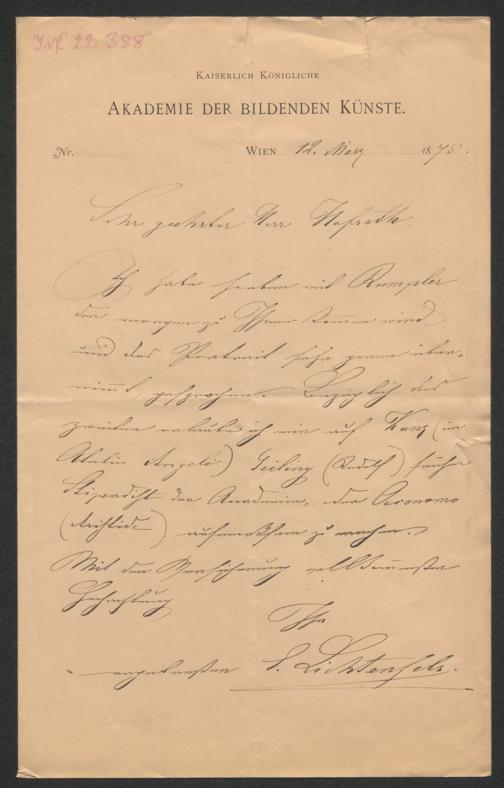 I.N. 22.388
KAISERLICH KÖNIGLICHE
AKADEMIE DER BILDENDEN KÜNSTE.
Nr. WIEN 12. März 1875.
Sehr geehrter Herr Hofrath.
Ich habe soeben mit Rumpler
der morgen zu Ihnen kommen wird,
und das Portrait sehr gerne über-
nimmt, gesprochen. Bezüglich des
zweiten erlaube ich mir auf Kanz (im
Atelier Angeli) Geiling (Rudolf) früher
Stipendist der Academie, oder Oeconomo
(Aristide) aufmerksam zu machen.
Mit der Versicherung vollkommenster
Hochachtung
Ihr
ergebenster E. Lichtenfels.